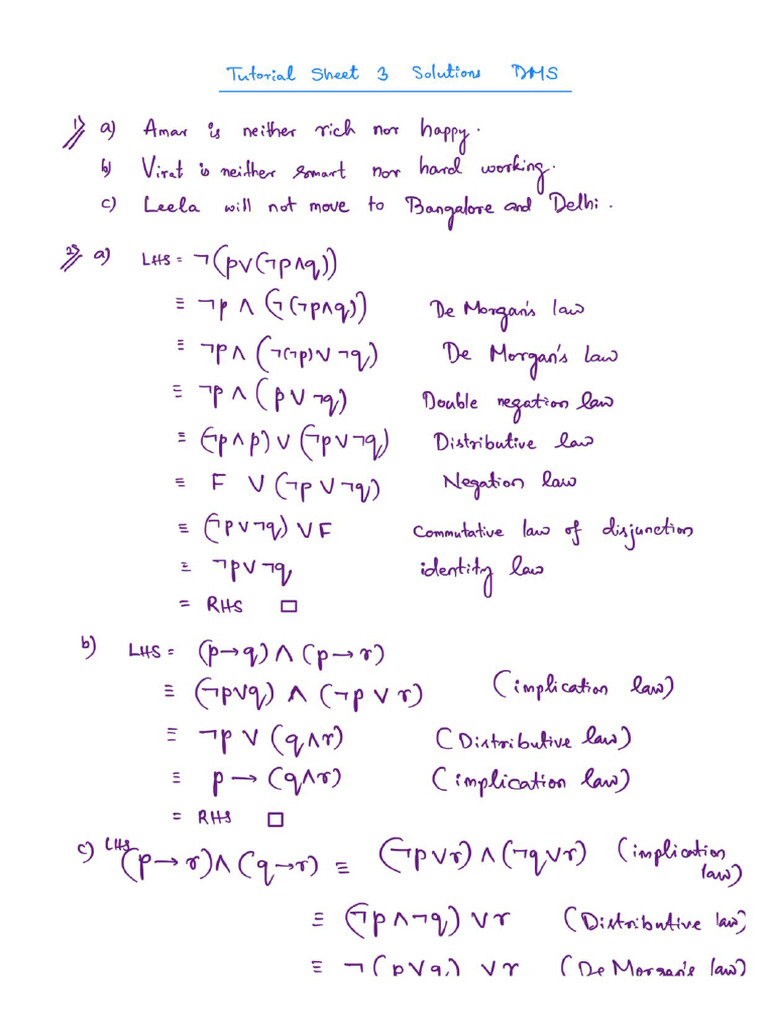 Tutorial Sheet 3 Solutions DMS
1) a) Amar is neither rich nor happy.
b) Virat is neither smart nor hard working.
c) Leela will not move to Bangalore and Delhi.
2) a) LHS = ¬(p∨(¬p∧q))
≡ ¬p ∧ (¬(¬p∧q)) De Morgan's law
≡ ¬p∧ (¬(¬p)∨¬q) De Morgan's law
≡ ¬p∧(p∨¬q) Double negation law
≡ (¬p∧p)∨(¬p∨¬q) Distributive law
≡ F ∨(¬p∨¬q) Negation law
≡ (¬p∨¬q)∨F Commutative law of disjunction
≡ ¬p∨¬q identity law
= RHS □
b) LHS = (p→q)∧(p→r)
≡ (¬p∨q) ∧ (¬p∨r) (implication law)
≡ ¬p∨(q∧r) (Distributive law)
≡ p→(q∧r) (implication law)
= RHS □
c) LHS (p→r)∧(q→r) ≡ (¬p∨r)∧(¬q∨r) (implication law)
≡ (¬p∧¬q)∨r (Distributive law)
≡ ¬(p∨q)∨r (De Morgan's law)